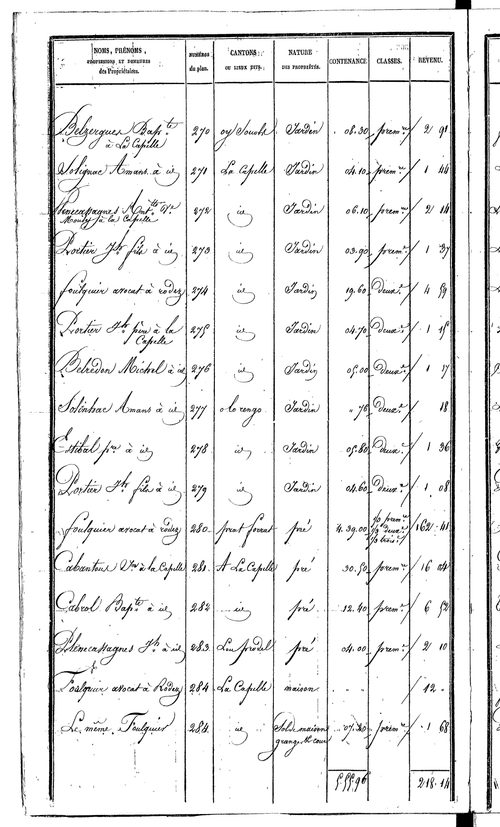 NOMS, PRÉNOMS, PROFESSIONS ET DEMEURES des Propriétaires. NUMÉROS du plan. CANTONS OU LIEUX DITS. NATURE DES PROPRIÉTÉS. CONTENANCE CLASSES. REVENU.
Belzergues Bap.te à La Capelle 270 Jardin 08.30 prem.re 2 91
Solignac Amans à id 271 La Capelle Jardin 04.10 prem.re 1 44
à la Capelle 272 id Jardin 06.10 prem.re 2 14
Portier fils à id 273 id Jardin 03.90 prem.re 1 37
foulquier avocat à rodez 274 id Jardin 19.60 Deux.e 4 59
Portier père à la Capelle 275 id Jardin 04.70 Deux.e 1
Belredon Michel à id 276 id Jardin 05.00 Deux.e 1 17
Solinhac Amans à id 277 Jardin 76 Deux.e 18
Estibal à id 278 id Jardin 05.80 Deux.e 1 36
Portier fils à id 279 id Jardin 04.60 deux.e 1 08
foulquier avocat à rodez 280 pré 4.39.00 162 41
Cabantous V.ve à la Capelle 281 A La Capelle pré 30.50 prem.re 16 04
Cabrol Bap.te à id 282 id pré 12.40 prem.re 6 52
à id 283 pré 04.00 prem.re 2 10
Foulquier avocat à Rodez 284 La Capelle maison 12
Le même Foulquier 284 id Sol de maison grange et cour 07.20 prem.re 1 68
5.55.96 218.14